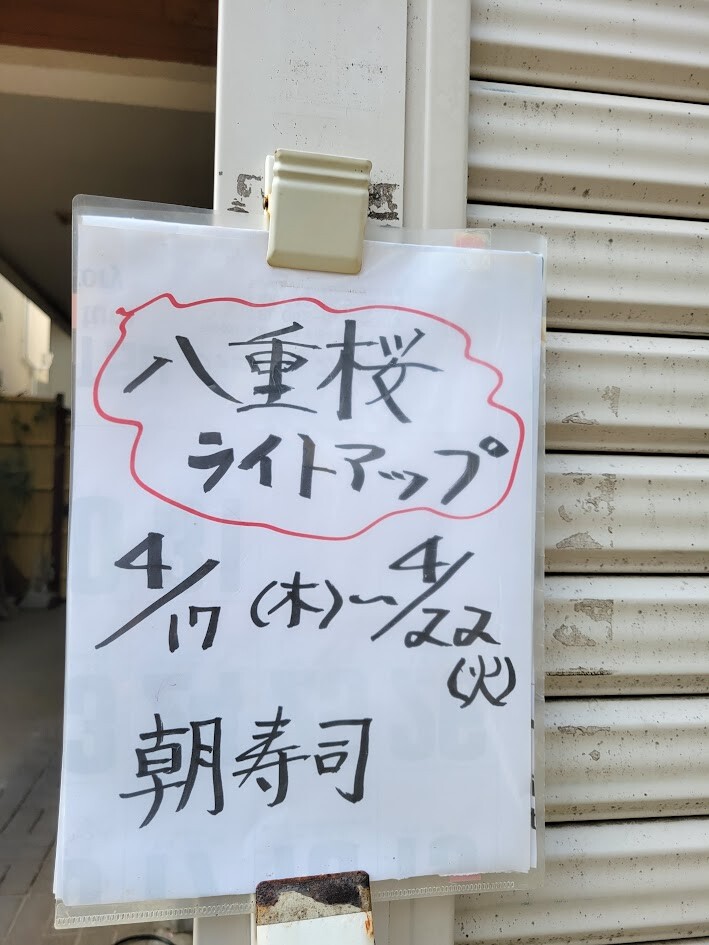 八重桜
ライトアップ
4/17(木)〜4/22
(火)
朝寿司